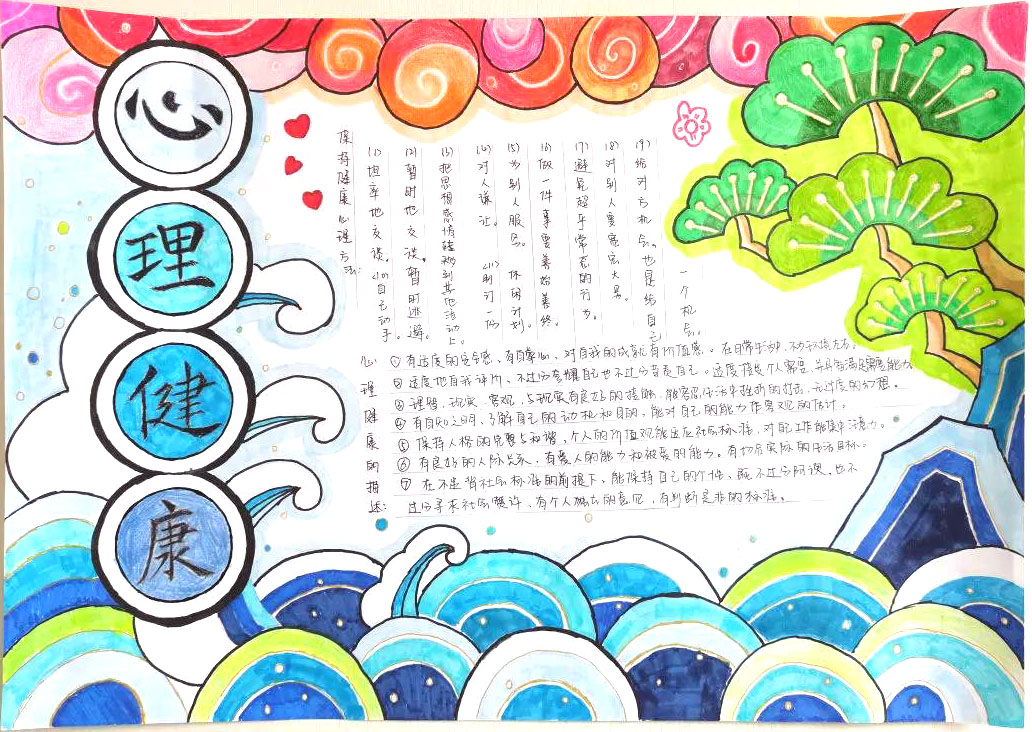 心理健康
保持健康心理方法:
(1)坦率地交谈。
(2)暂时地交谈。暂时逃避。
(3)把思想感情转移到其他活动上。
(4)对人谦让。
(5)为别人服务。
(6)做一件事要善始善终。
(7)避免超乎常态的行为。
(8)对别人要宽宏大量。
(9)给对方机会。也是给自己一个机会。
(10)自己动手。
(11)制订一份休闲计划。
心理健康的描述:
①有适度的安全感、有自尊心、对自我的成就有价值感。在日常生活中,不
②适度地自我评价、不过分夸耀自己也不过分苛责自己。适度接受个人需要,并具有满足需要能力。
③理智、现实、客观、与现实有良好的接触,能容忍生活中挫折的打击,无过度的幻想。
④有自知之明,了解自己的动机和目的,能对自己的能力作客观的估计。
⑤保持人格的完整与和谐,个人的价值观能适应社会标准,对自己工作能集中注意力。
⑥有良好的人际关系,有爱人的能力和被爱的能力。有切合实际的生活目标。
⑦在不违背社会标准的前提下、能保持自己的个性、既不过分阿谀、也不
过分寻求社会赞许、有个人独立的意见,有判断是非的标准。